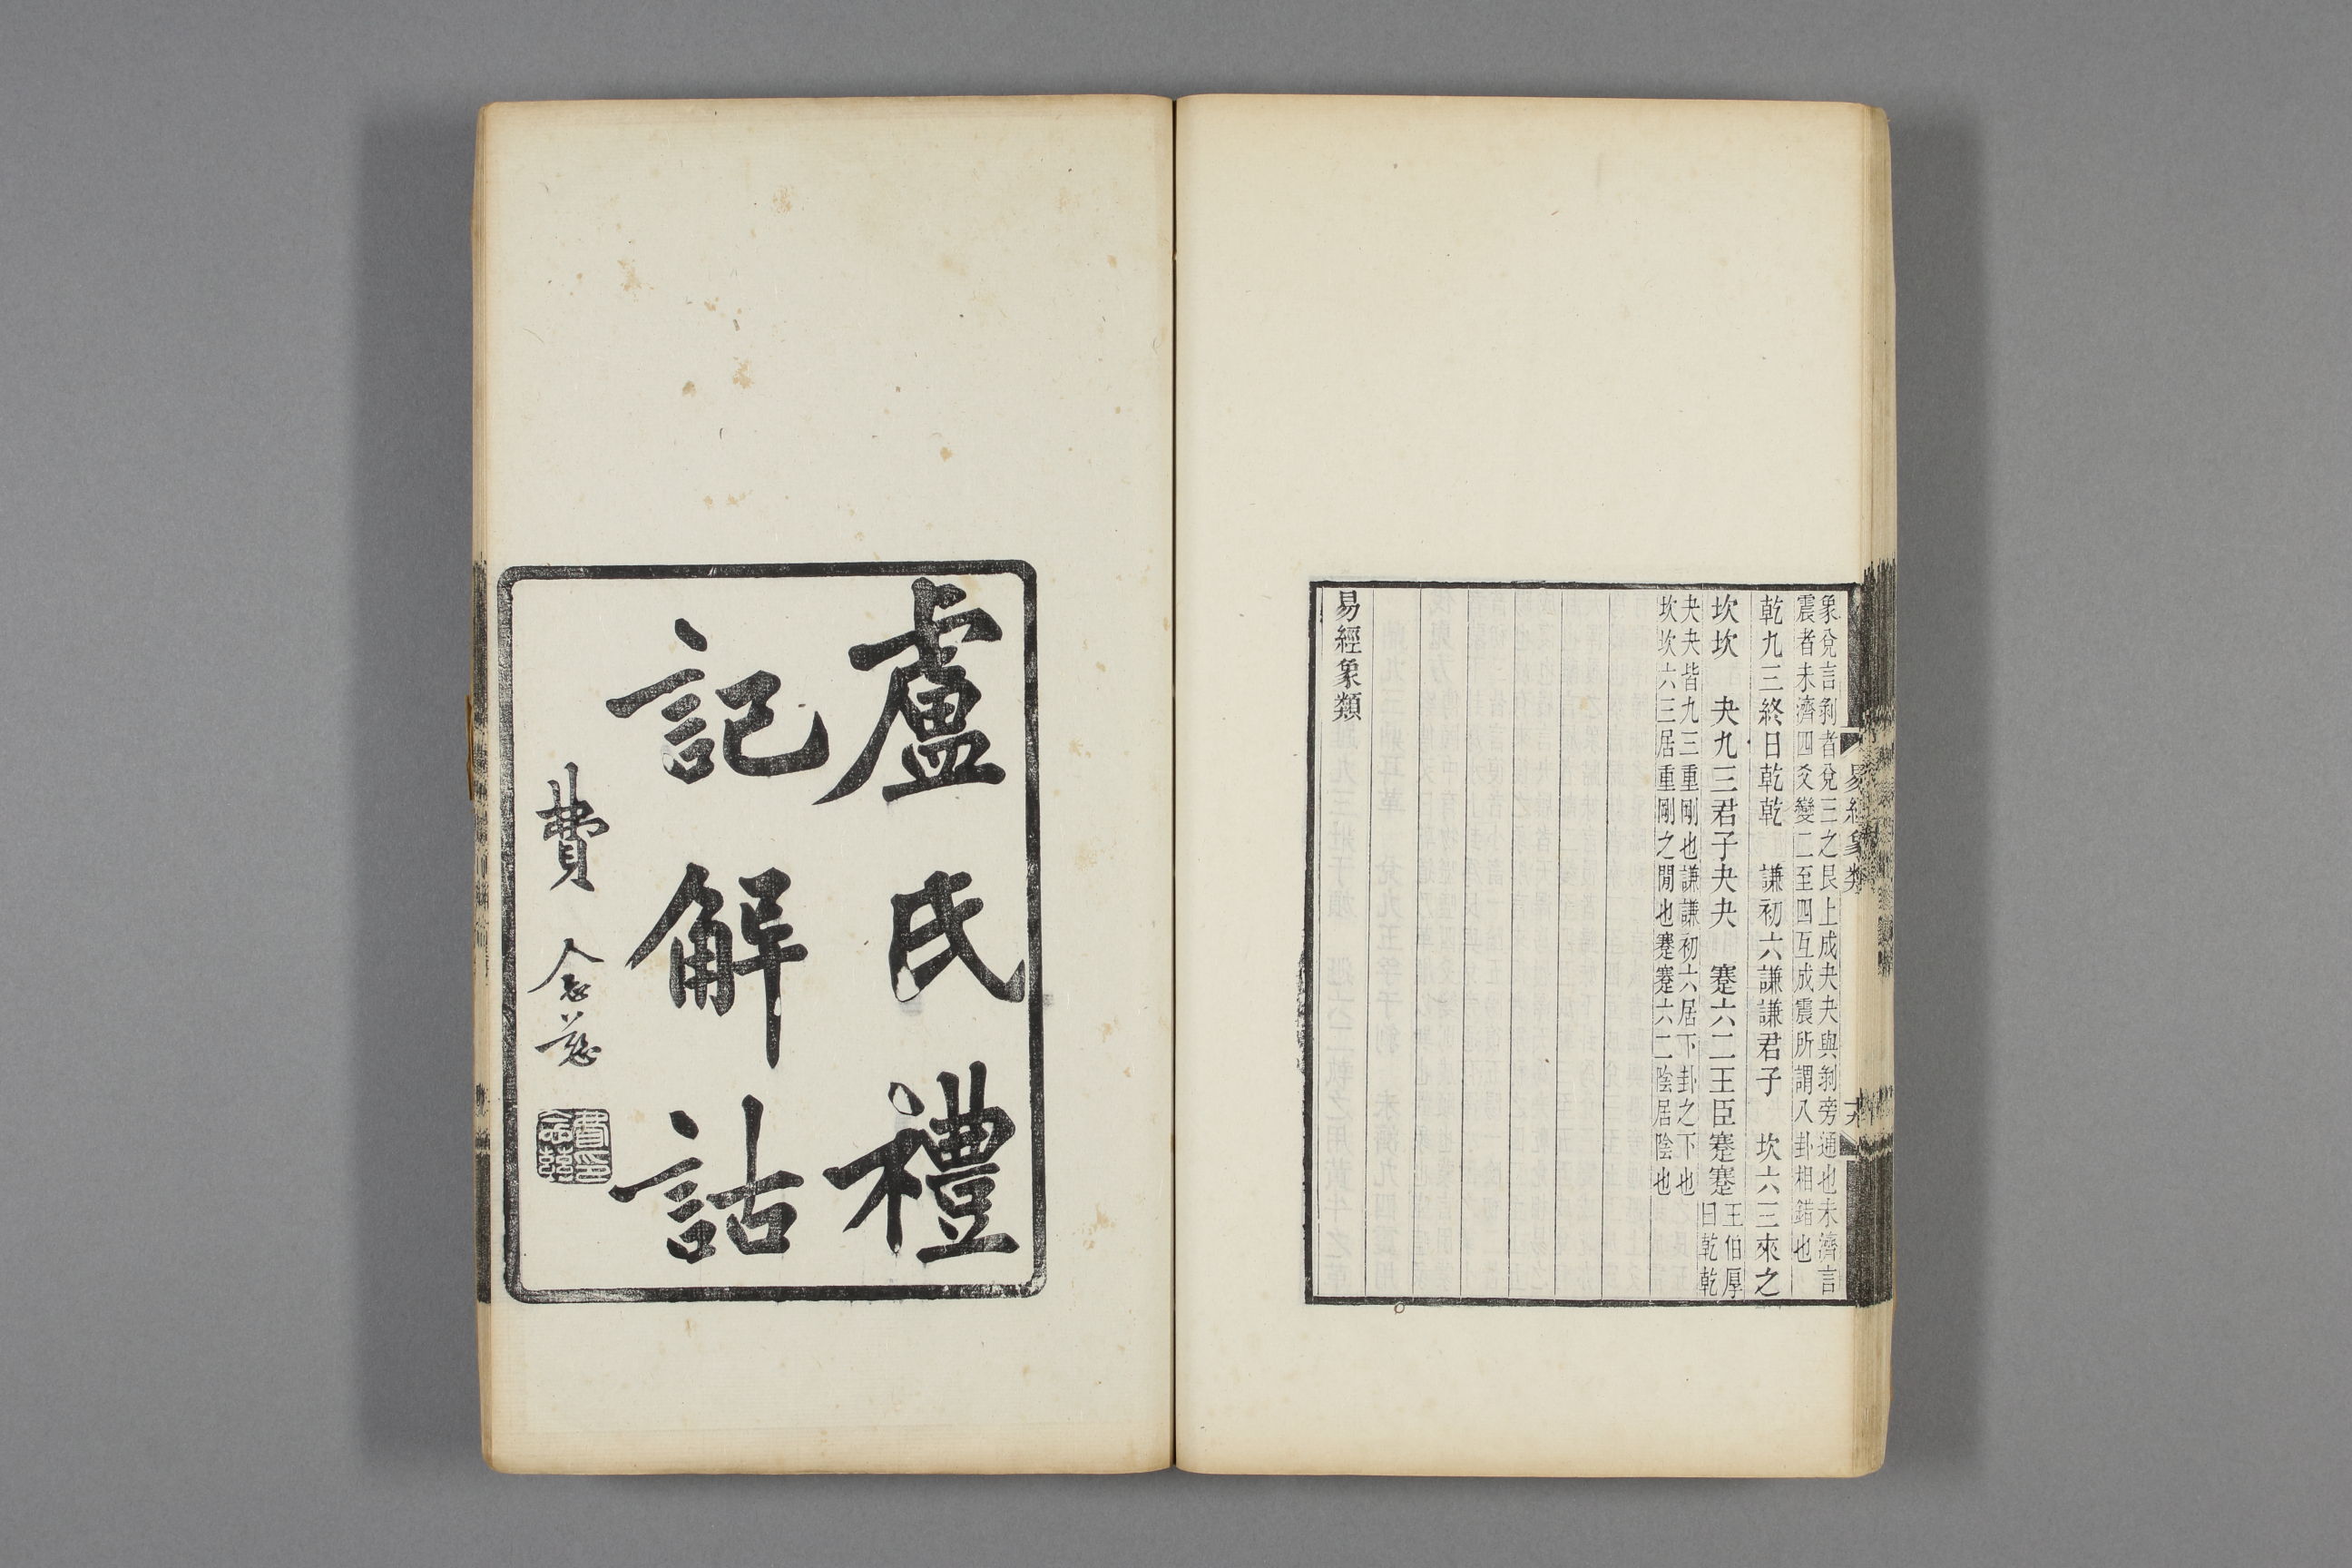 象兌言剝者兌三之艮上成夬夬與剝旁通也未濟言
震者未濟四爻變二至四互成震所謂八卦相錯也
乾九三終日乾乾　謙初六謙謙君子　坎六三來之
坎坎　夬九三君子夬夬　蹇六二王臣蹇蹇
王伯厚
曰乾乾
夬夬皆九三重剛也謙謙初六居下卦之下也
坎坎六三居重剛之閒也蹇蹇六二陰居陰也
易經象類
易經象類
十六
盧氏禮
記解詁
費念慈
費念慈印